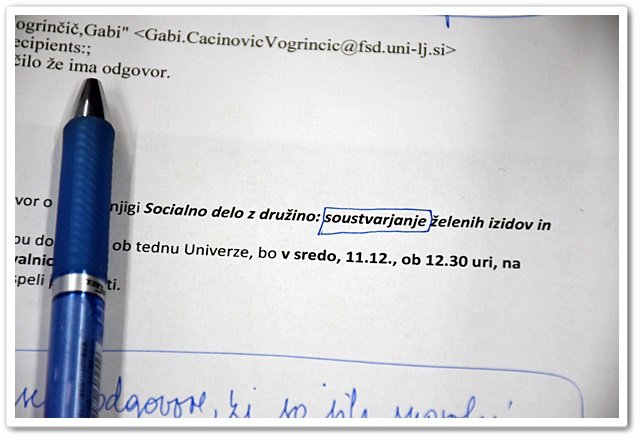 ogrinčič,Gabi" <Gabi.CacinovicVogrincic@fsd.uni-lj.si>
ecipients:;
čilo že ima odgovor.
vor o njigi Socialno delo z družino: soustvarjanje želenih izidov in
ou do ob tednu Univerze, bo v sredo, 11.12., ob 12.30 uri, na
valnic
speli ti.
odgovore, ki so bili